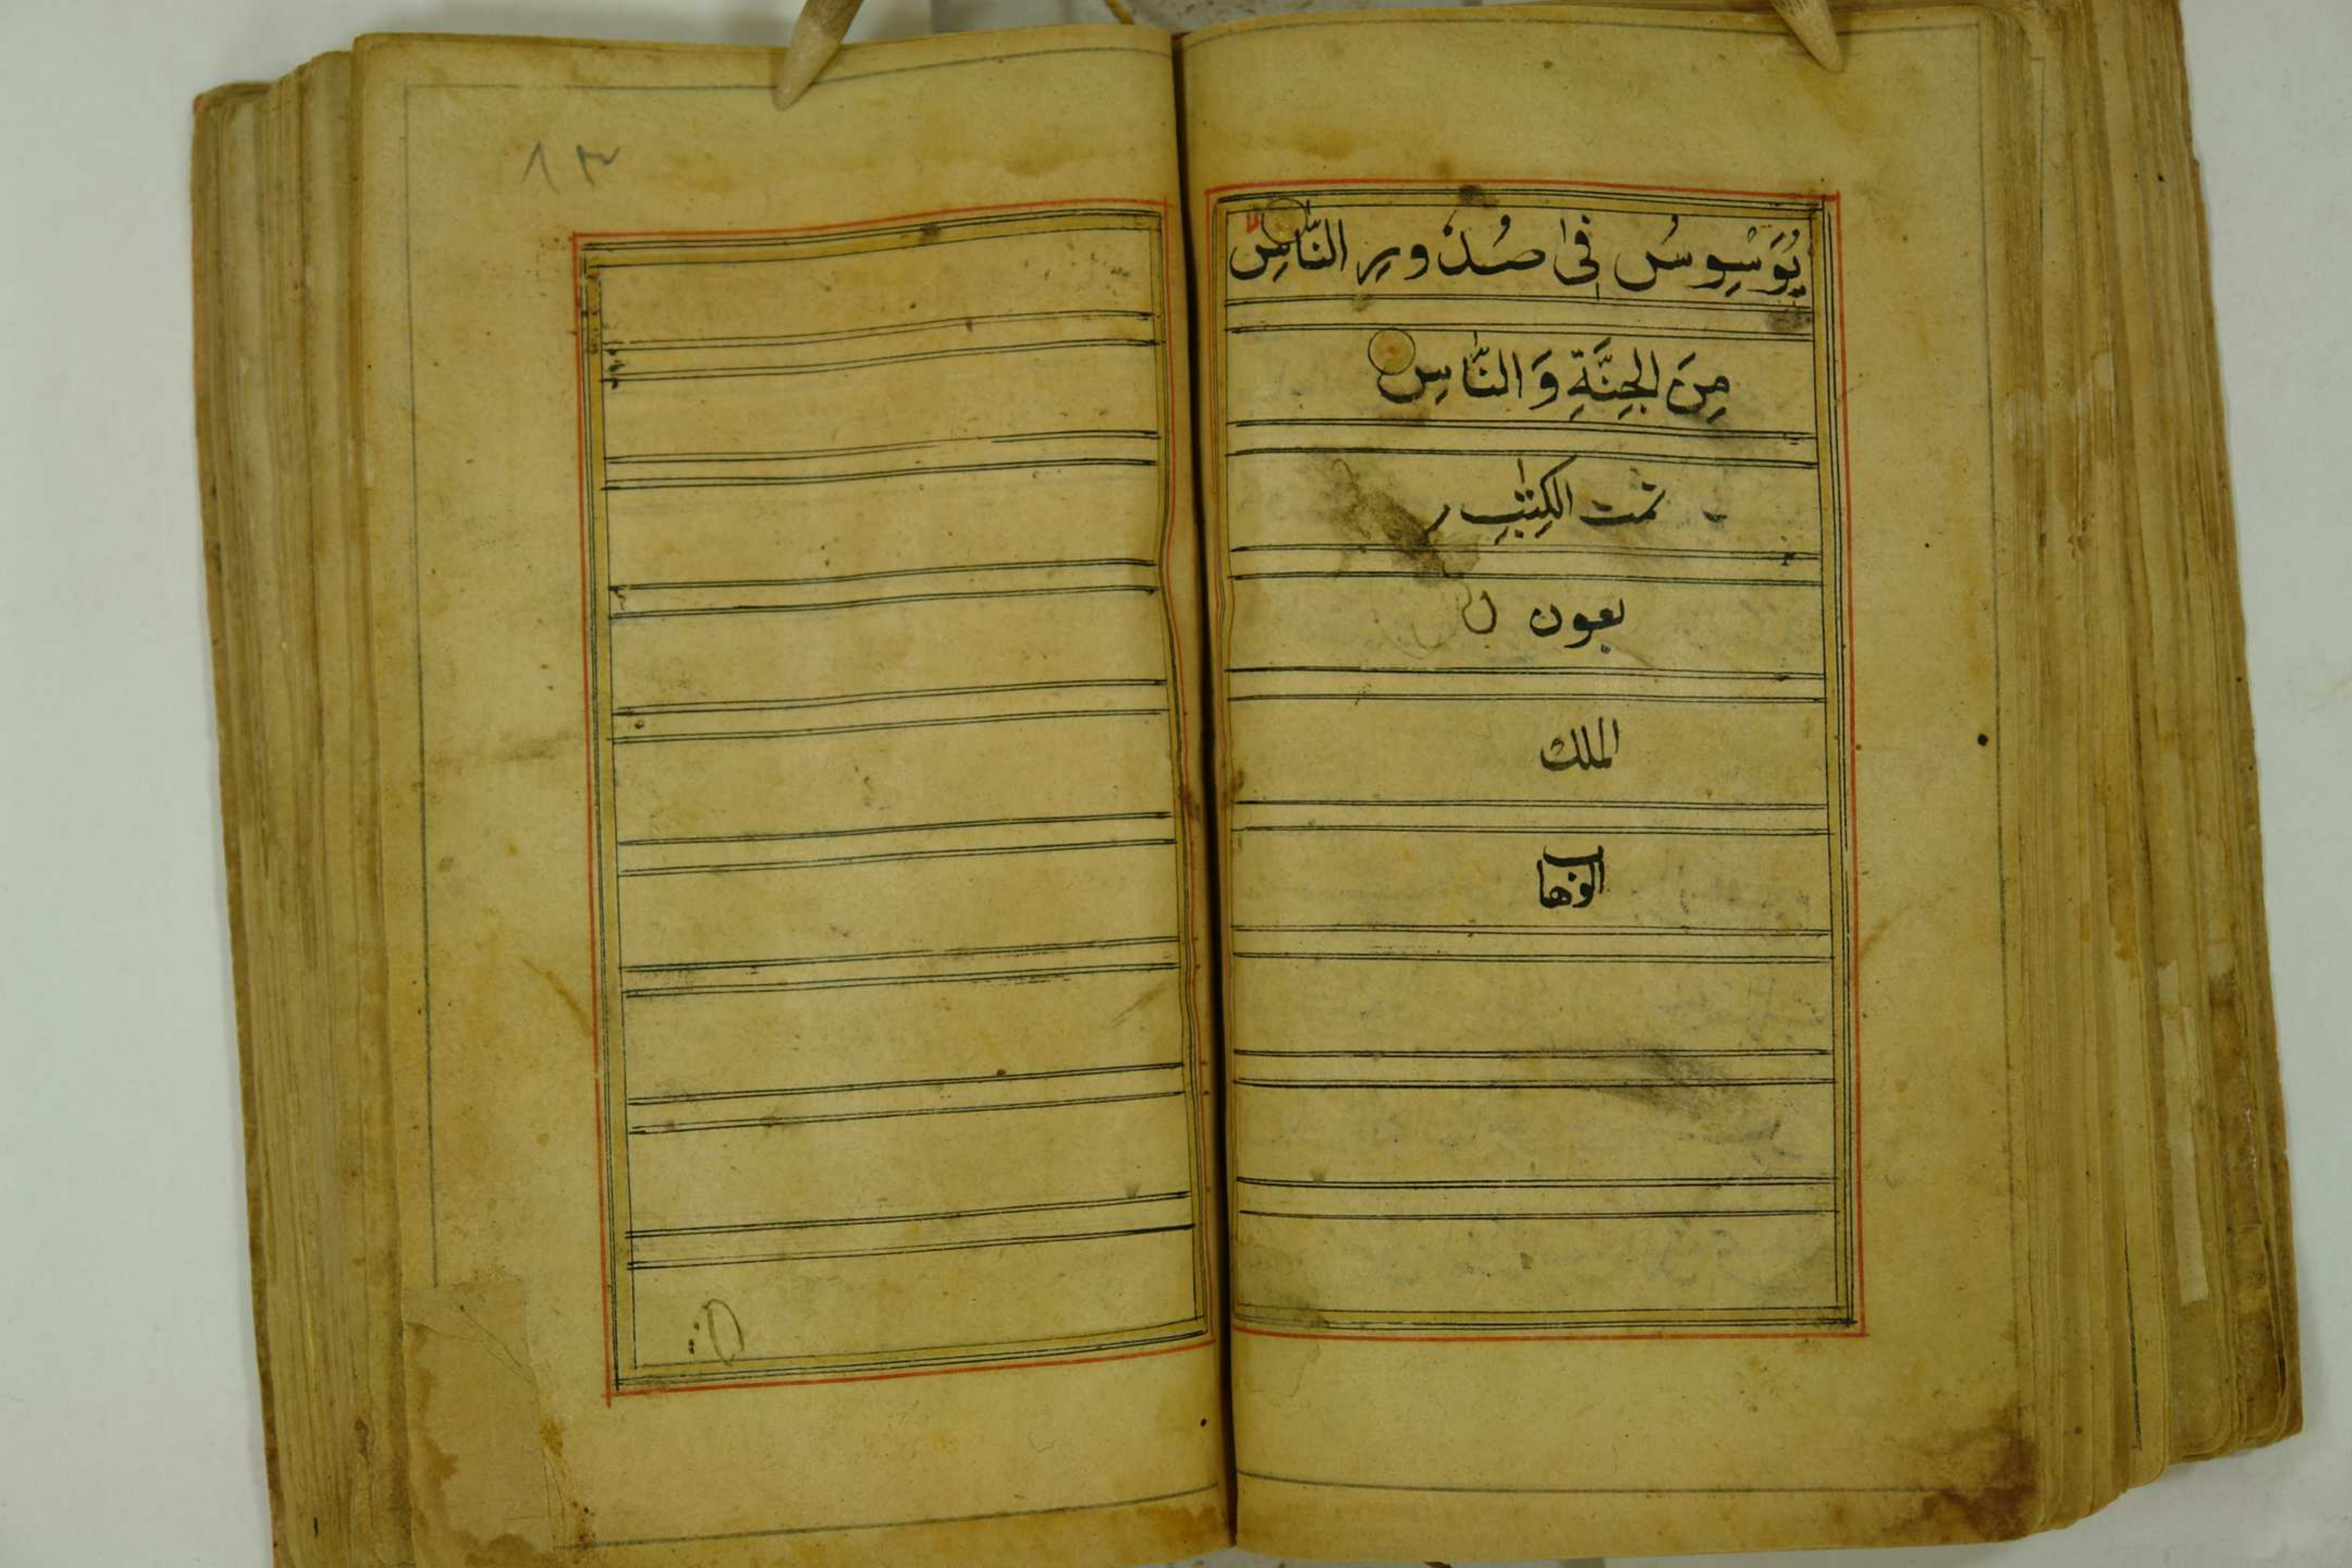 يُوَسْوِسُ فِىْ صُدُورِ النَّاسِ لا
مِنَ الْجِنَّةِ وَ النَّاسِ
تمت الكِتٰبِ
بعون
الملك
الوهاب